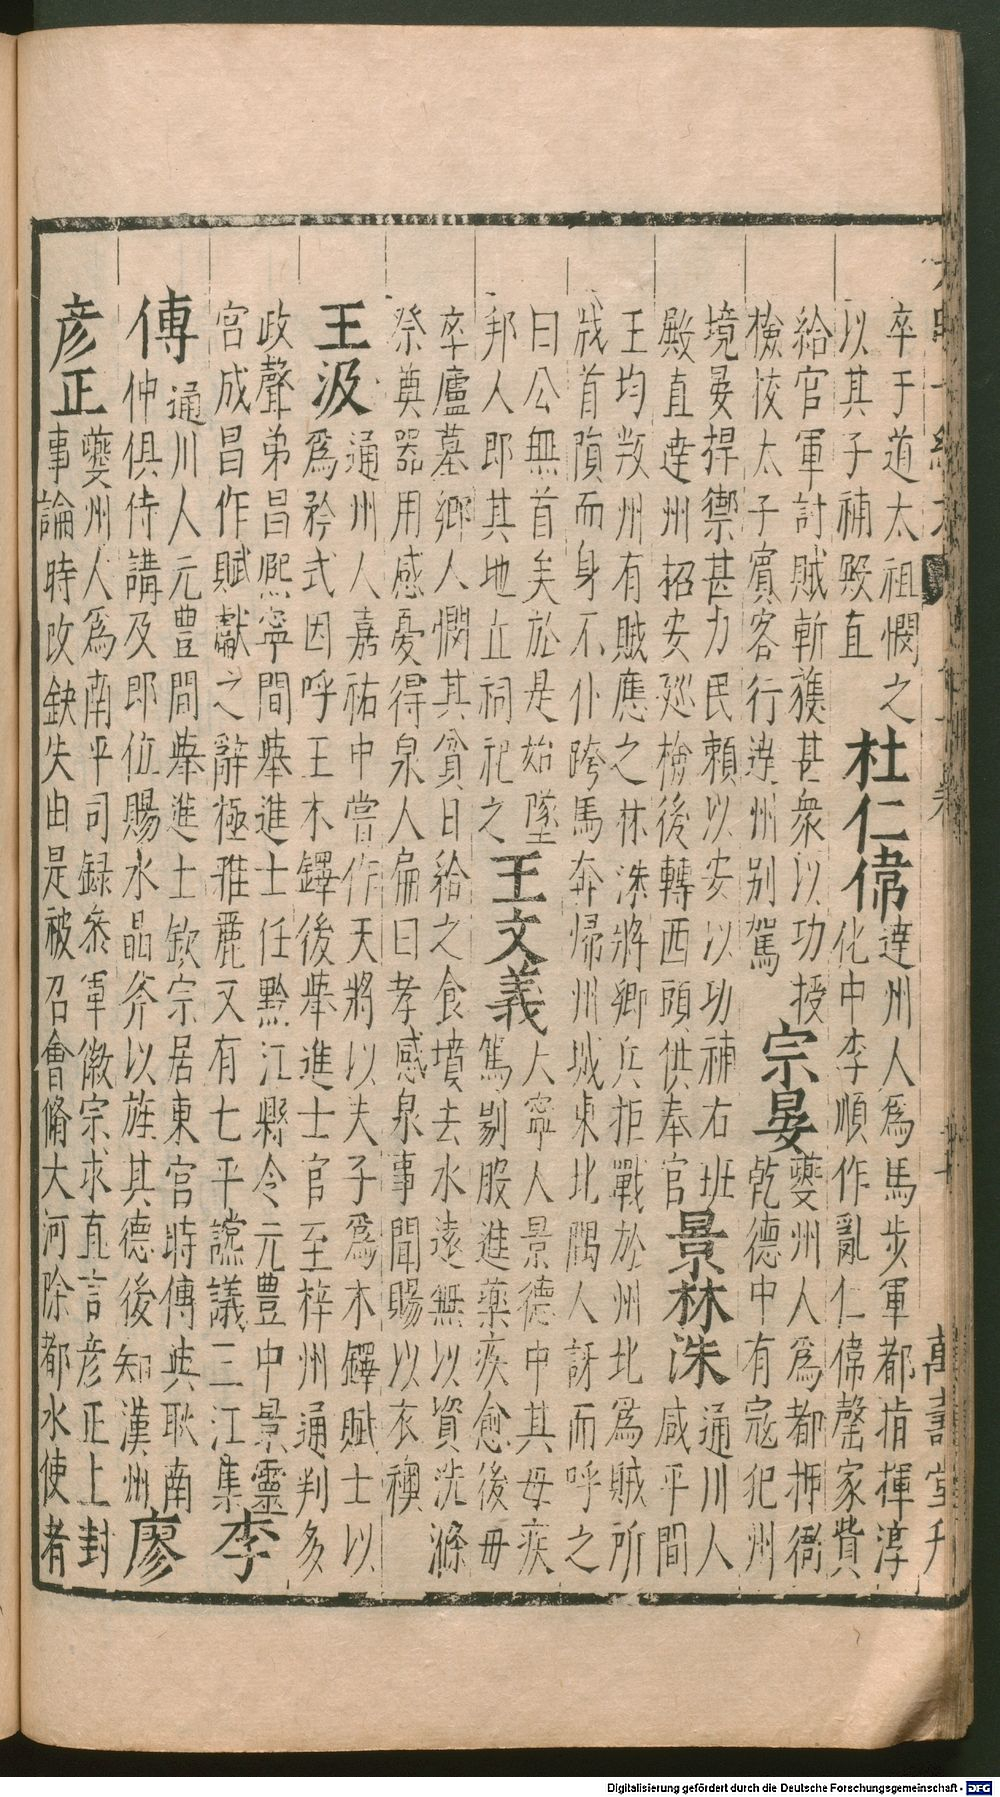 萬壽堂刊
卒于道太祖憫之
以其子補殿直
杜仁偉
達州人爲馬步軍都指揮淳
化中李順作亂仁偉罄家貲
給官軍討賊斬獲甚衆以功授
檢校太子賓客行達州别駕
宗晏
夔州人爲都押衙
乾德中有寇犯州
境晏捍禦甚力民賴以安以功補右班
殿直達州招安廵檢後轉西頭供奉官
景林洙
通川人
咸平間
王均叛州有賊應之林洙將鄉兵拒戰於州北爲賊所
戕首隕而身不仆跨馬奔歸州城東北隅人訝而呼之
曰公無首矣於是始墜
邦人即其地立祠祀之
王文義
大寧人景德中其母疾
篤剔股進藥疾愈後毋
卒廬墓鄉人憫其貧日給之食墳去水遠無以資洗滌
祭奠器用感憂得泉人扁曰孝感泉事聞賜以衣襖
王汲
通州人嘉祐中嘗作天將以夫子爲木鐸賦士以
爲矜式因呼王木鐸後舉進士官至梓州通判多
政聲弟昌熈寧間舉進士任黔江縣令元豐中景靈
宮成昌作賦獻之辭極雅麗又有七平讜議三江集
李
傳
通川人元豐間舉進士欽宗居東宮時傳與耿南
仲俱侍講及即位賜水晶斧以旌其德後知漢州
廖
彦正
夔州人爲南平司録叅軍徽宗求直言彦正上封
事論時政缺失由是被召會脩大河除都水使者
Digitalisierung gefördert durch die Deutsche Forschungsgemeinschaft - DFG